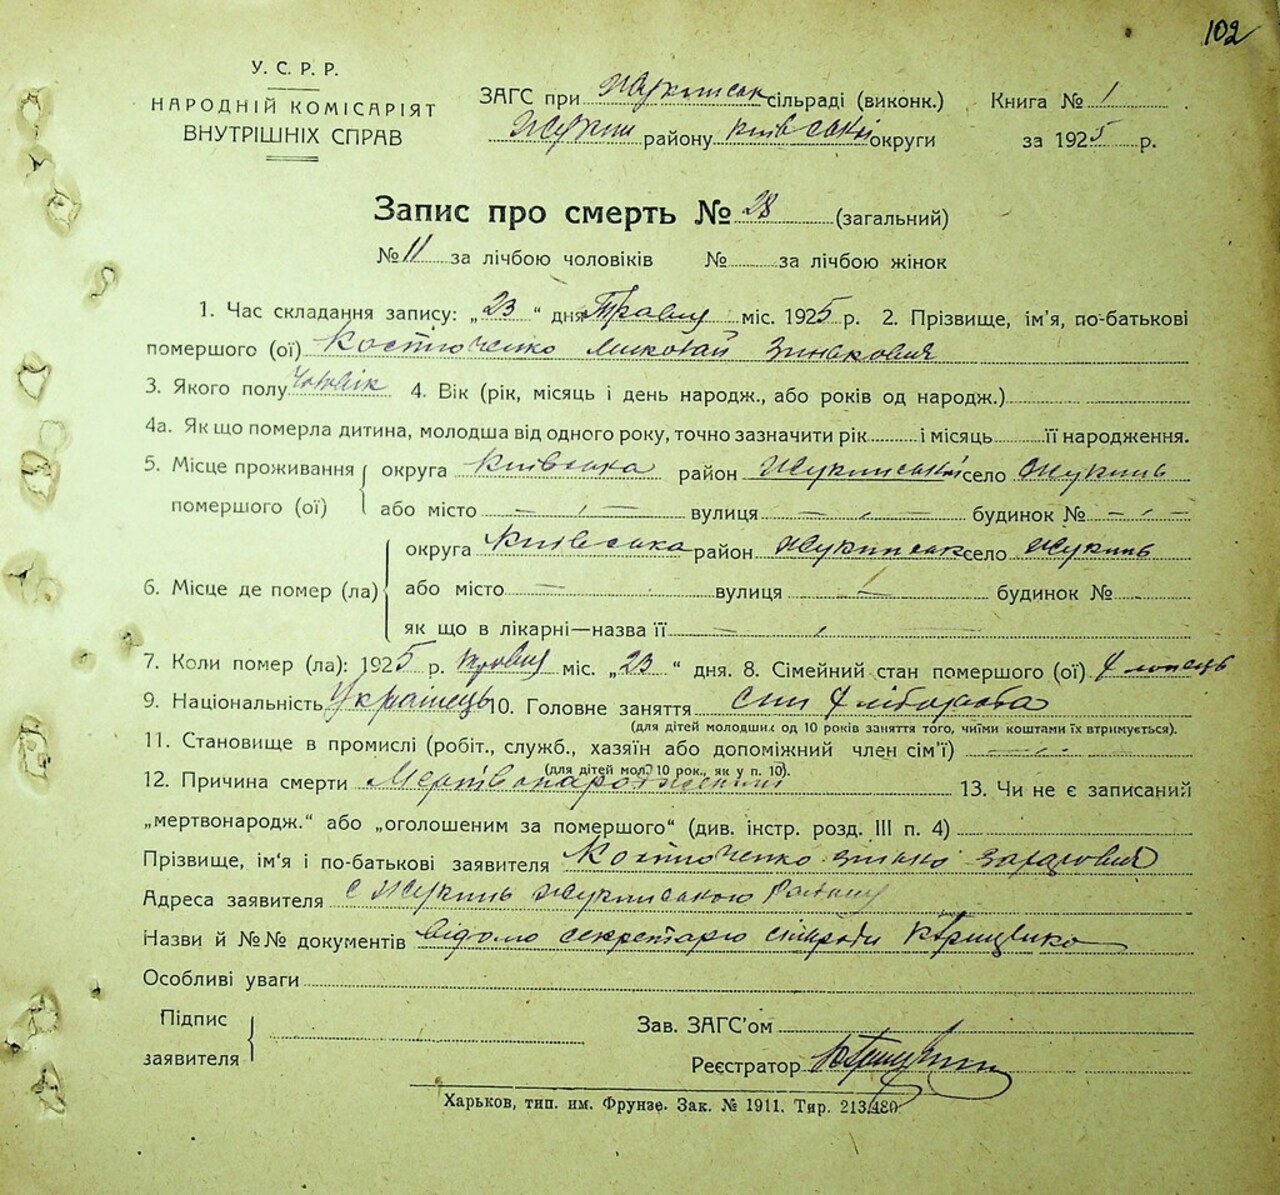 102
У. С. Р. Р.
НАРОДНІЙ КОМІСАРІЯТ
ВНУТРІШНІХ СПРАВ
ЗАГС при Жукинськ сільраді (виконк.)
Жукин району київської округи
Книга № 1
за 1925 р.
Запис про смерть № 28 (загальний)
№ 11 за лічбою чоловіків № за лічбою жінок
1. Час складання запису: „23“ дня Травня міс. 1925 р. 2. Прізвище, ім'я, по-батькові
помершого (ої) Костюченко Миколай Зинькович
3. Якого полу Чоловік 4. Вік (рік, місяць і день народж., або років од народж.)
4а. Як що померла дитина, молодша від одного року, точно зазначити рік і місяць її народження.
5. Місце проживання помершого (ої) округа Київська район Жукинський село Жукинь
або місто — вулиця — будинок № —
6. Місце де помер (ла) округа Київська район Жукинськ село Жукинь
або місто — вулиця — будинок №
як що в лікарні—назва її —
7. Коли помер (ла): 1925 р. травня міс. „23“ дня. 8. Сімейний стан помершого (ої)
9. Національність Українець 10. Головне заняття син Хлібороба
(для дітей молодших од 10 років заняття того, чиїми коштами їх втримується).
11. Становище в промислі (робіт., служб., хазяїн або допоміжний член сім'ї) —
(для дітей мол. 10 рок., як у п. 10).
12. Причина смерти 13. Чи не є записаний
„мертвонародж.“ або „оголошеним за помершого“ (див. інстр. розд. III п. 4)
Прізвище, ім'я і по-батькові заявителя Костюченко Зінько Захарович
Адреса заявителя с Жукинь Жукинського Району
Назви й №№ документів відомо секретарю сільради
Особливі уваги
Підпис заявителя
Зав. ЗАГС'ом
Реєстратор
Харьков, тип. им. Фрунзе. Зак. № 1911. Тир. 213.480.